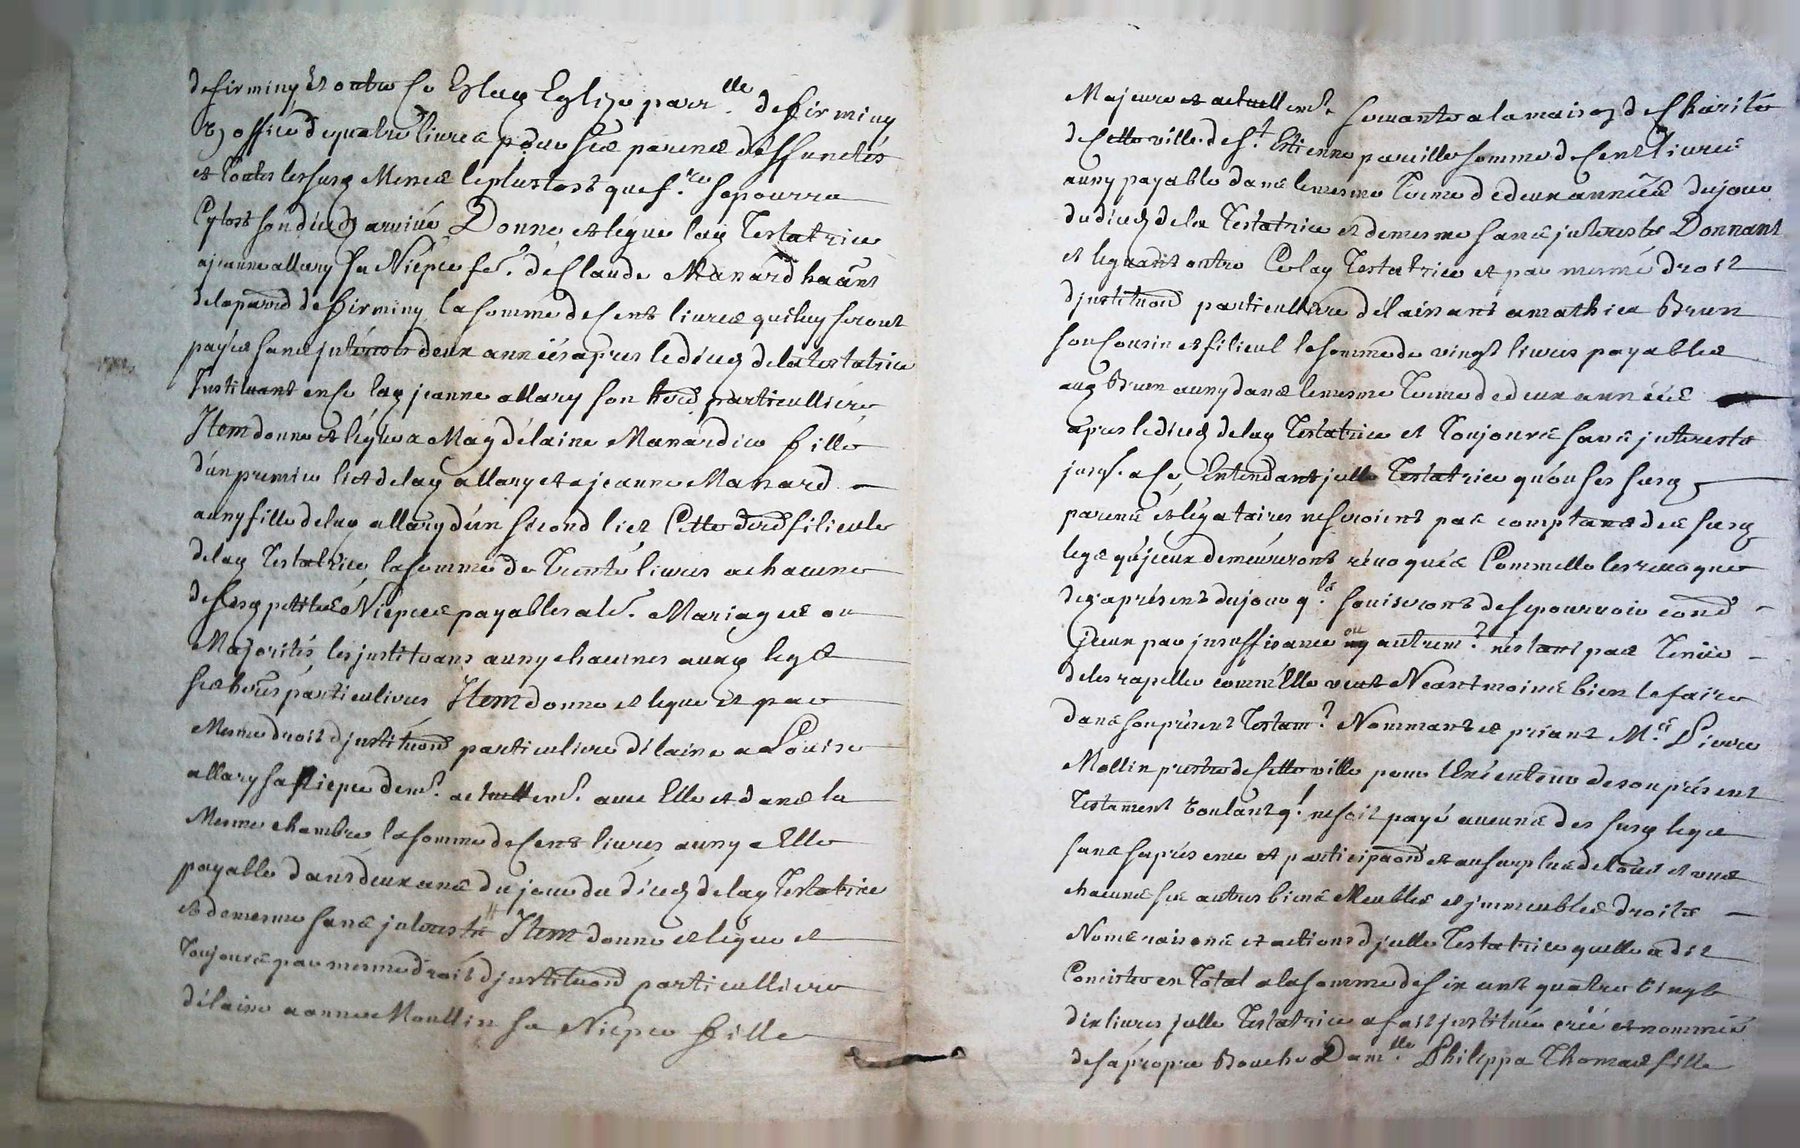 de firminy Et outre ce Esluy Eglize parr.lle de firminy
Un office de quatre livres pour ses parens deffunctés
et toutes lesusq Messes le plustost que f.re se pourra
Cytost son déceds arrivé Donne et légue lad Testatrice
a jeanne allary sa Niepce fe. de Claude Manard ha᷉ant
de la parr de firminy la somme de Cent livres quy luy seront
payés sans interests deux années apres le déceds de la testatrice
Instituant en ce lad jeanne allary son her particulliere
Item donne et légue a Magdelaine Manardier fille
d'un premier lict de lad allary et a jeanne Manard
aussy fille de lad allary d'un second lict Cette der filieule
de lad Testatrice la somme de Trente livres achacune
de sesd petites Niepces payables a le.r Mariages ou
Majorités, les instituans aussy chacunes auxd legs
ses hers particulieres Item donne et legue et par
Mesme droit d'institu᷉on particuliere délaisse a Louise
allary sa Niepce dem.t actuellem.t avec Elle et dans la
Mesme chambre la somme de Cent livres aussy a Elle
payable dans deux ans du jour du déceds de lad Testatrice
et de mesme sans interests Item donne et légue et
Toujours par mesme droit d'institu᷉on particulliere
délaisse a anne Moullin sa Niepce fille
Majeure et actuellem.t servante a la maison de Charité
de Cette ville de S.t Estienne pareille somme de Cent livres
aussy payable dans le mesme Terme de deux années du jour
du déceds de la Testatrice et de mesme sans interests Donnant
et leguant outre Ce lad Testatrice et par mesme droit
d'institu᷉on particulliere délaissant a mathieu Brun
son Cousin et filieul la somme de vingt livres payables
aud Brun aussy dans le mesme Terme de deux années
apres le déceds de lad Testatrice et Toujours sans interests
jusq. a ce, Entendant jcelle Testatrice qu'ou ses susd
parens et légataires ne seroient pas comptans des susd
legs qu'jceux demeureront révoqués Comme Elle les revoque
dez apresent du jour q.ls se pourvoir cont
jceux par insuffisance ou autrem.t n'estant pas Tenüe
de les rapeller comm'Elle veut Neantmoins bien le faire
dans son présent Testam.t Nommant et priant M.re Pierre
Mollin prestre de Cette ville pour Exécuteur de son présent
Testament voulant q.l ne soit payé aucuns des susd legs
sans sa présence et participa᷉on et au surplus de tous et uns
chacuns ses autres biens Meubles et jmmeubles droits
Noms raisons et actions d'jcelle Testatrice quelle a dit
Concister en Total a la somme de six cent quatre vingt
dix livres jcelle Testatrice a fait institué créé et nommée
de sa propre Bouche Dam.lle Philippa Thomas fille